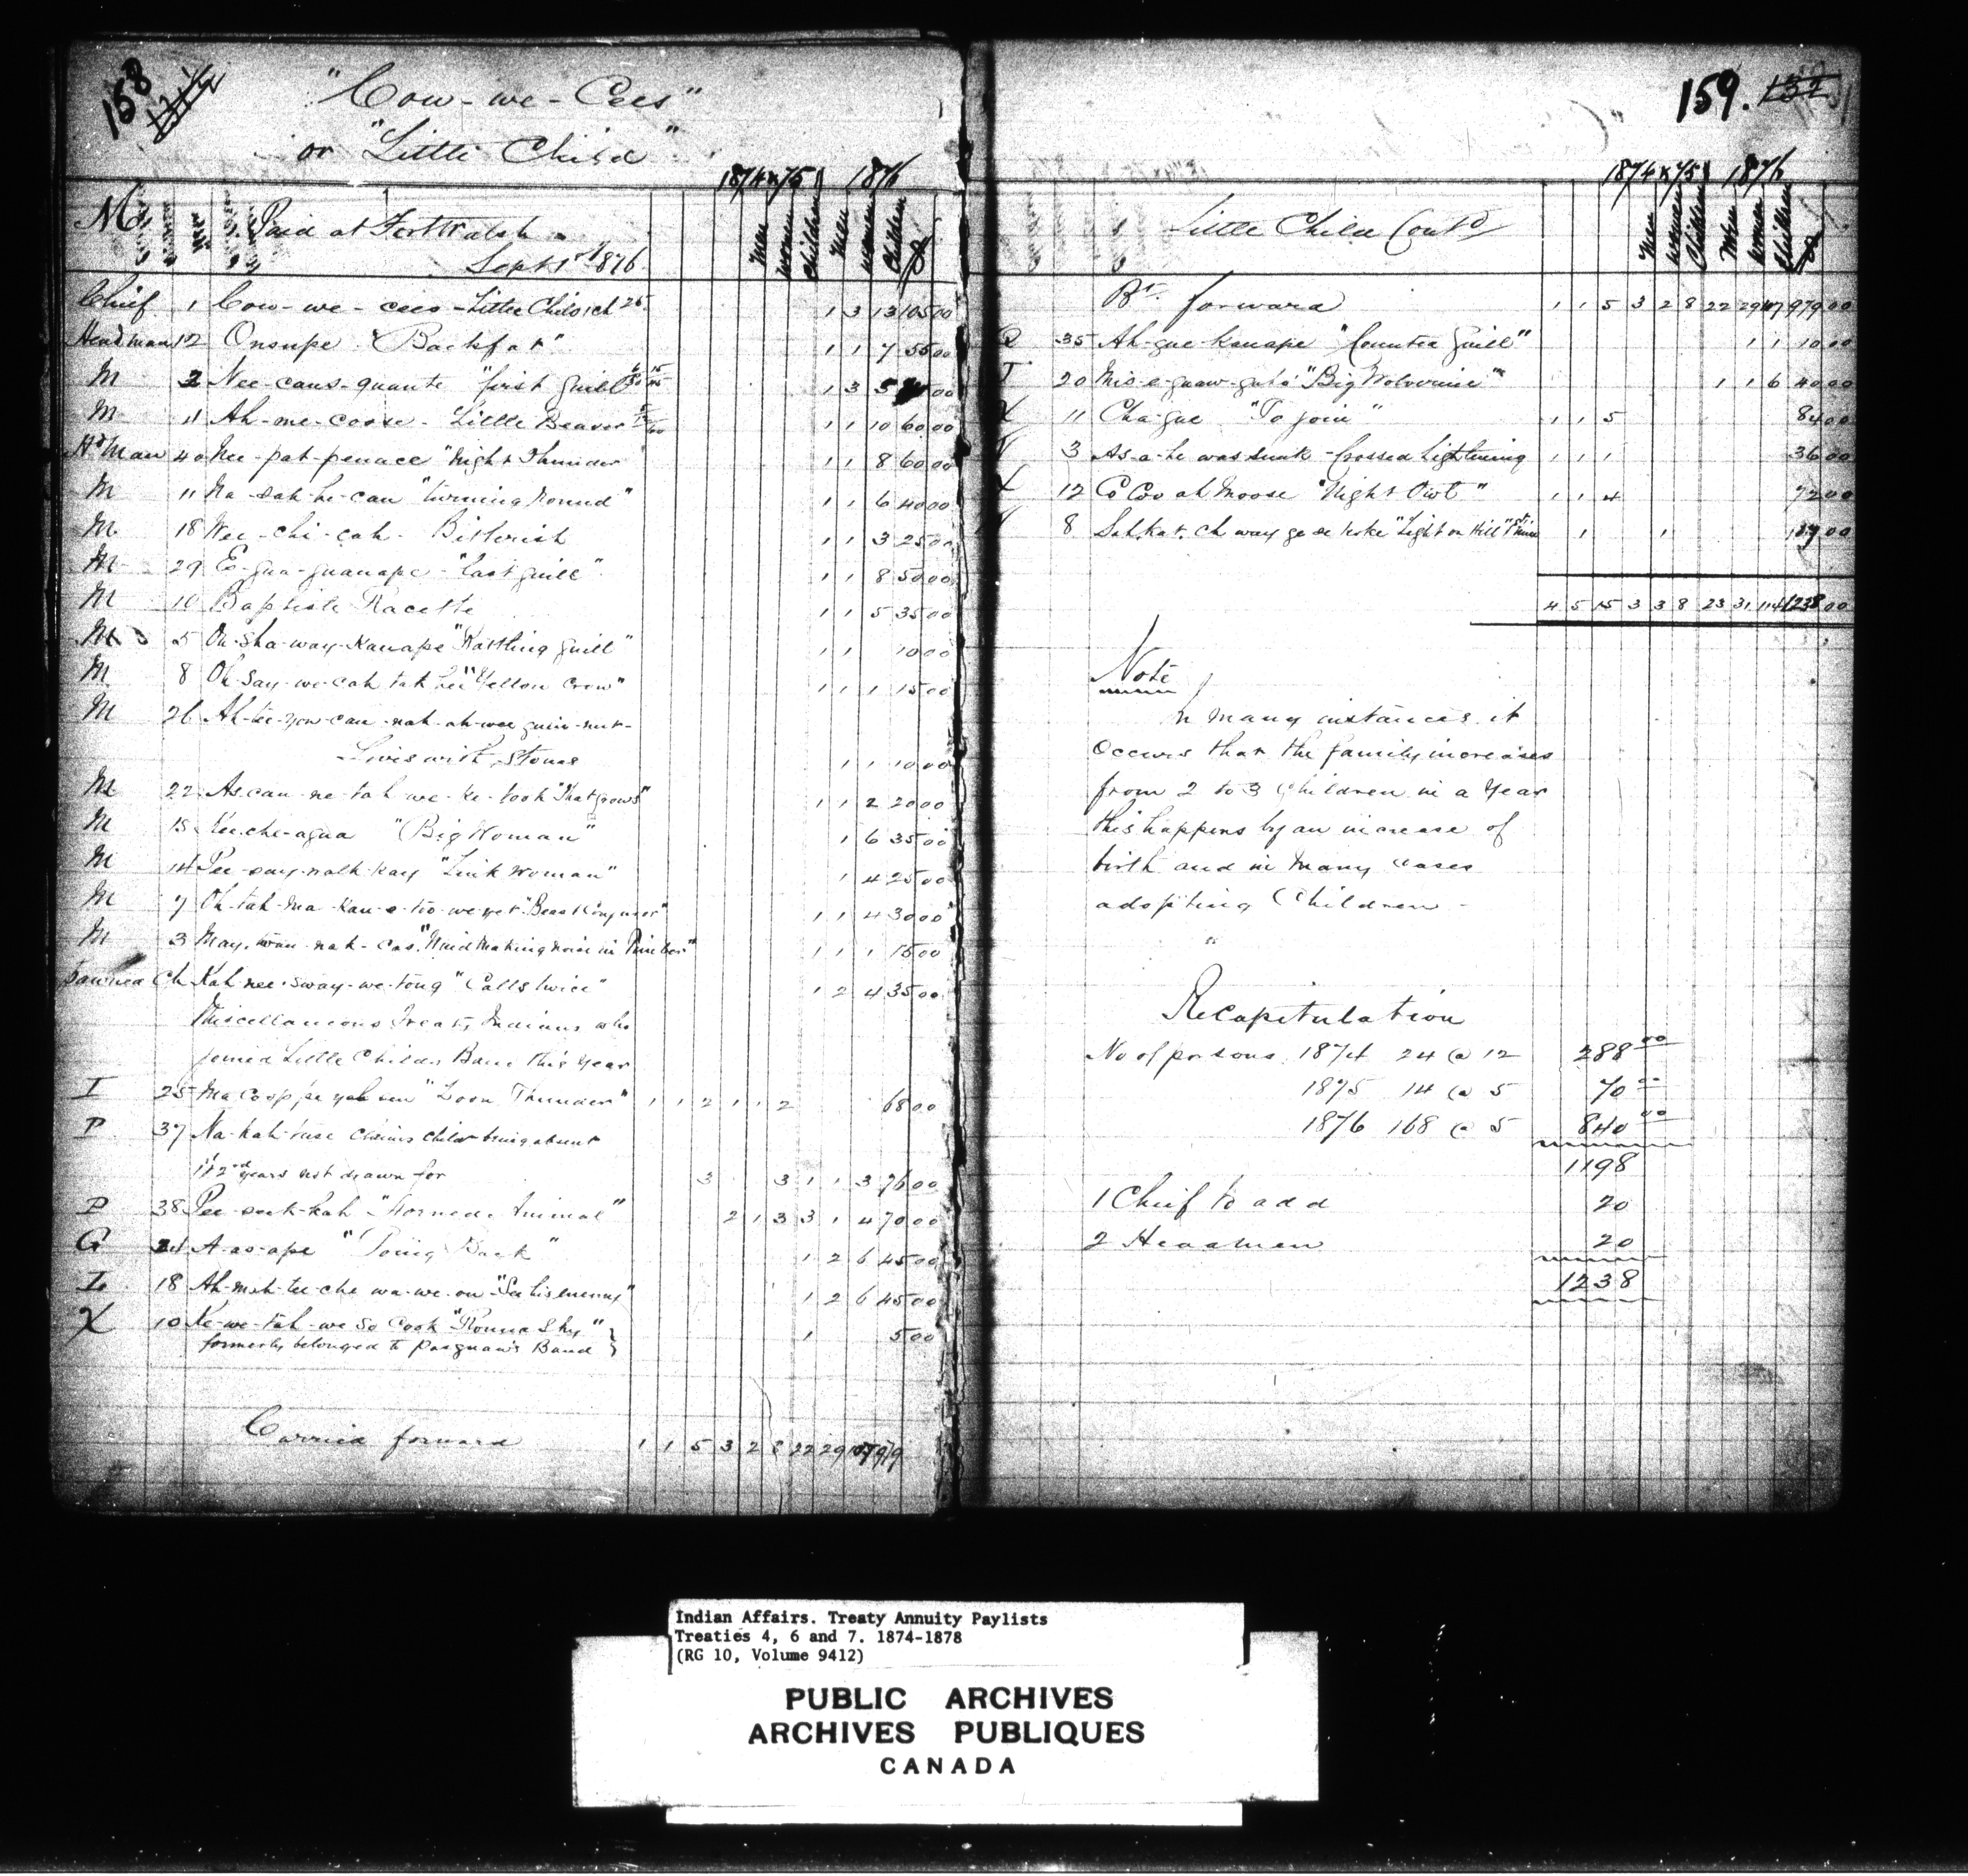 158
"Cow-we-Cees"
or "Little Child"
1874 & 75 1876
M Paid at Fort Walsh
Sept 1st 1876
Men Women Children Men Women Children $
Chief 1 Cow-we-cees - Little Child ch 25 1 3 13 105 00
Headman 12 Onsupe "Backfat" 1 1 7 55 00
M 2 Nee-caus-quante "first quill" 1 3 5 00
M 11 Ah-me-coose - Little Beaver 1 1 10 60 00
Hd Man 40 Nee-pat-penace "Night Thunder" 1 1 8 60 00
M 11 Na-sah-he-can "turning Round" 1 1 6 40 00
M 18 Wee-chi-cah - Bitterish 1 1 3 25 00
M 29 E-qua-quanape - "Last quill" 1 1 8 50 00
M 10 Baptiste Racette 1 1 5 35 00
M 5 On-sha-way-Kanape "Rattling quill" 1 1 10 00
M 8 Oh-Say-we-cah-tak-her "Yellow Crow" 1 1 1 15 00
M 26 Ah-tee-yow-can-nah-ah-wee
Lives with Stones 1 1 10 00
M 22 As-can-ne-tah-we-ke-took "That grows" 1 1 2 20 00
M 15 Kee-che-aqua "Big Woman" 1 6 35 00
M 14 Pee-say-nalk-kay "Link Woman" 1 4 25 00
M 7 Oh-tah-ma-kan-e-too-we-yet "Beast Conjuror" 1 1 4 30 00
M 3 May-twan-nah-cas "Maid Making noise in Timber" 1 1 1 15 00
Ch Kah-nee-sway-we-tong "Calls twice" 1 2 4 35 00
Miscellaneous Treaty Indians who
joined Little Childs Band this Year
I 25 "Loon Thunder" 1 1 2 1 1 2 68 00
P 37 Na-kah-tuse claims child being absent
1st & 2nd years not drawn for 3 3 1 1 3 76 00
P 38 Pee-seek-kah "Horned Animal" 2 1 3 3 1 4 70 00
G 24 A-as-ape "Going Back" 1 2 6 45 00
I 18 Ah-mah-tee-che-wa-we-on "See his enemy" 1 2 6 45 00
X 10 Ke-we-tah-we So Cook "Round Sky" } 1 5 00
formerly belonged to Pasquaw's Band
Carried forward 1 1 5 3 2 8 22 29 107 979
159. 132
1874 & 75 1876
Little Child Contd
Men Women Children Men Women Children $
Bt. forward 1 1 5 3 2 8 22 29 107 979 00
35 Ah-que-kanape "Counted Quill" 1 1 10 00
20 Mis-e-quaw-gata "Big Wolverine" 1 1 6 40 00
11 Cha-gue "To join" 1 1 5 84 00
3 As-a-he was sunk - Crossed Lightning 1 1 1 36 00
12 Co Coo ah Moose "Night Owl" 1 1 4 72 00
8 Sah kat. ch way ge se koke "Light on Hill" 1 1 17 00
4 5 15 3 3 8 23 31 114 1238 00
Note
In many instances it
occurs that the family increases
from 2 to 3 Children in a Year
this happens by an increase of
birth and in many cases
adopting Children -
Recapitulation
No of persons 1874 24 @ 12 288 00
1875 14 @ 5 70 00
1876 168 @ 5 840 00
1198
1 Chief to add 20
2 Headmen 20
1238
Indian Affairs. Treaty Annuity Paylists
Treaties 4, 6 and 7. 1874-1878
(RG 10, Volume 9412)
PUBLIC ARCHIVES
ARCHIVES PUBLIQUES
CANADA